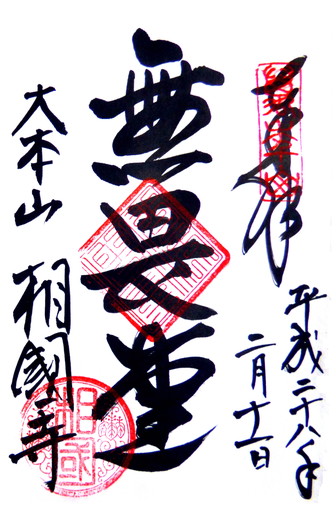 奉拝
平成二八年
二月十一日
無畏堂
大本山 相國寺
相國